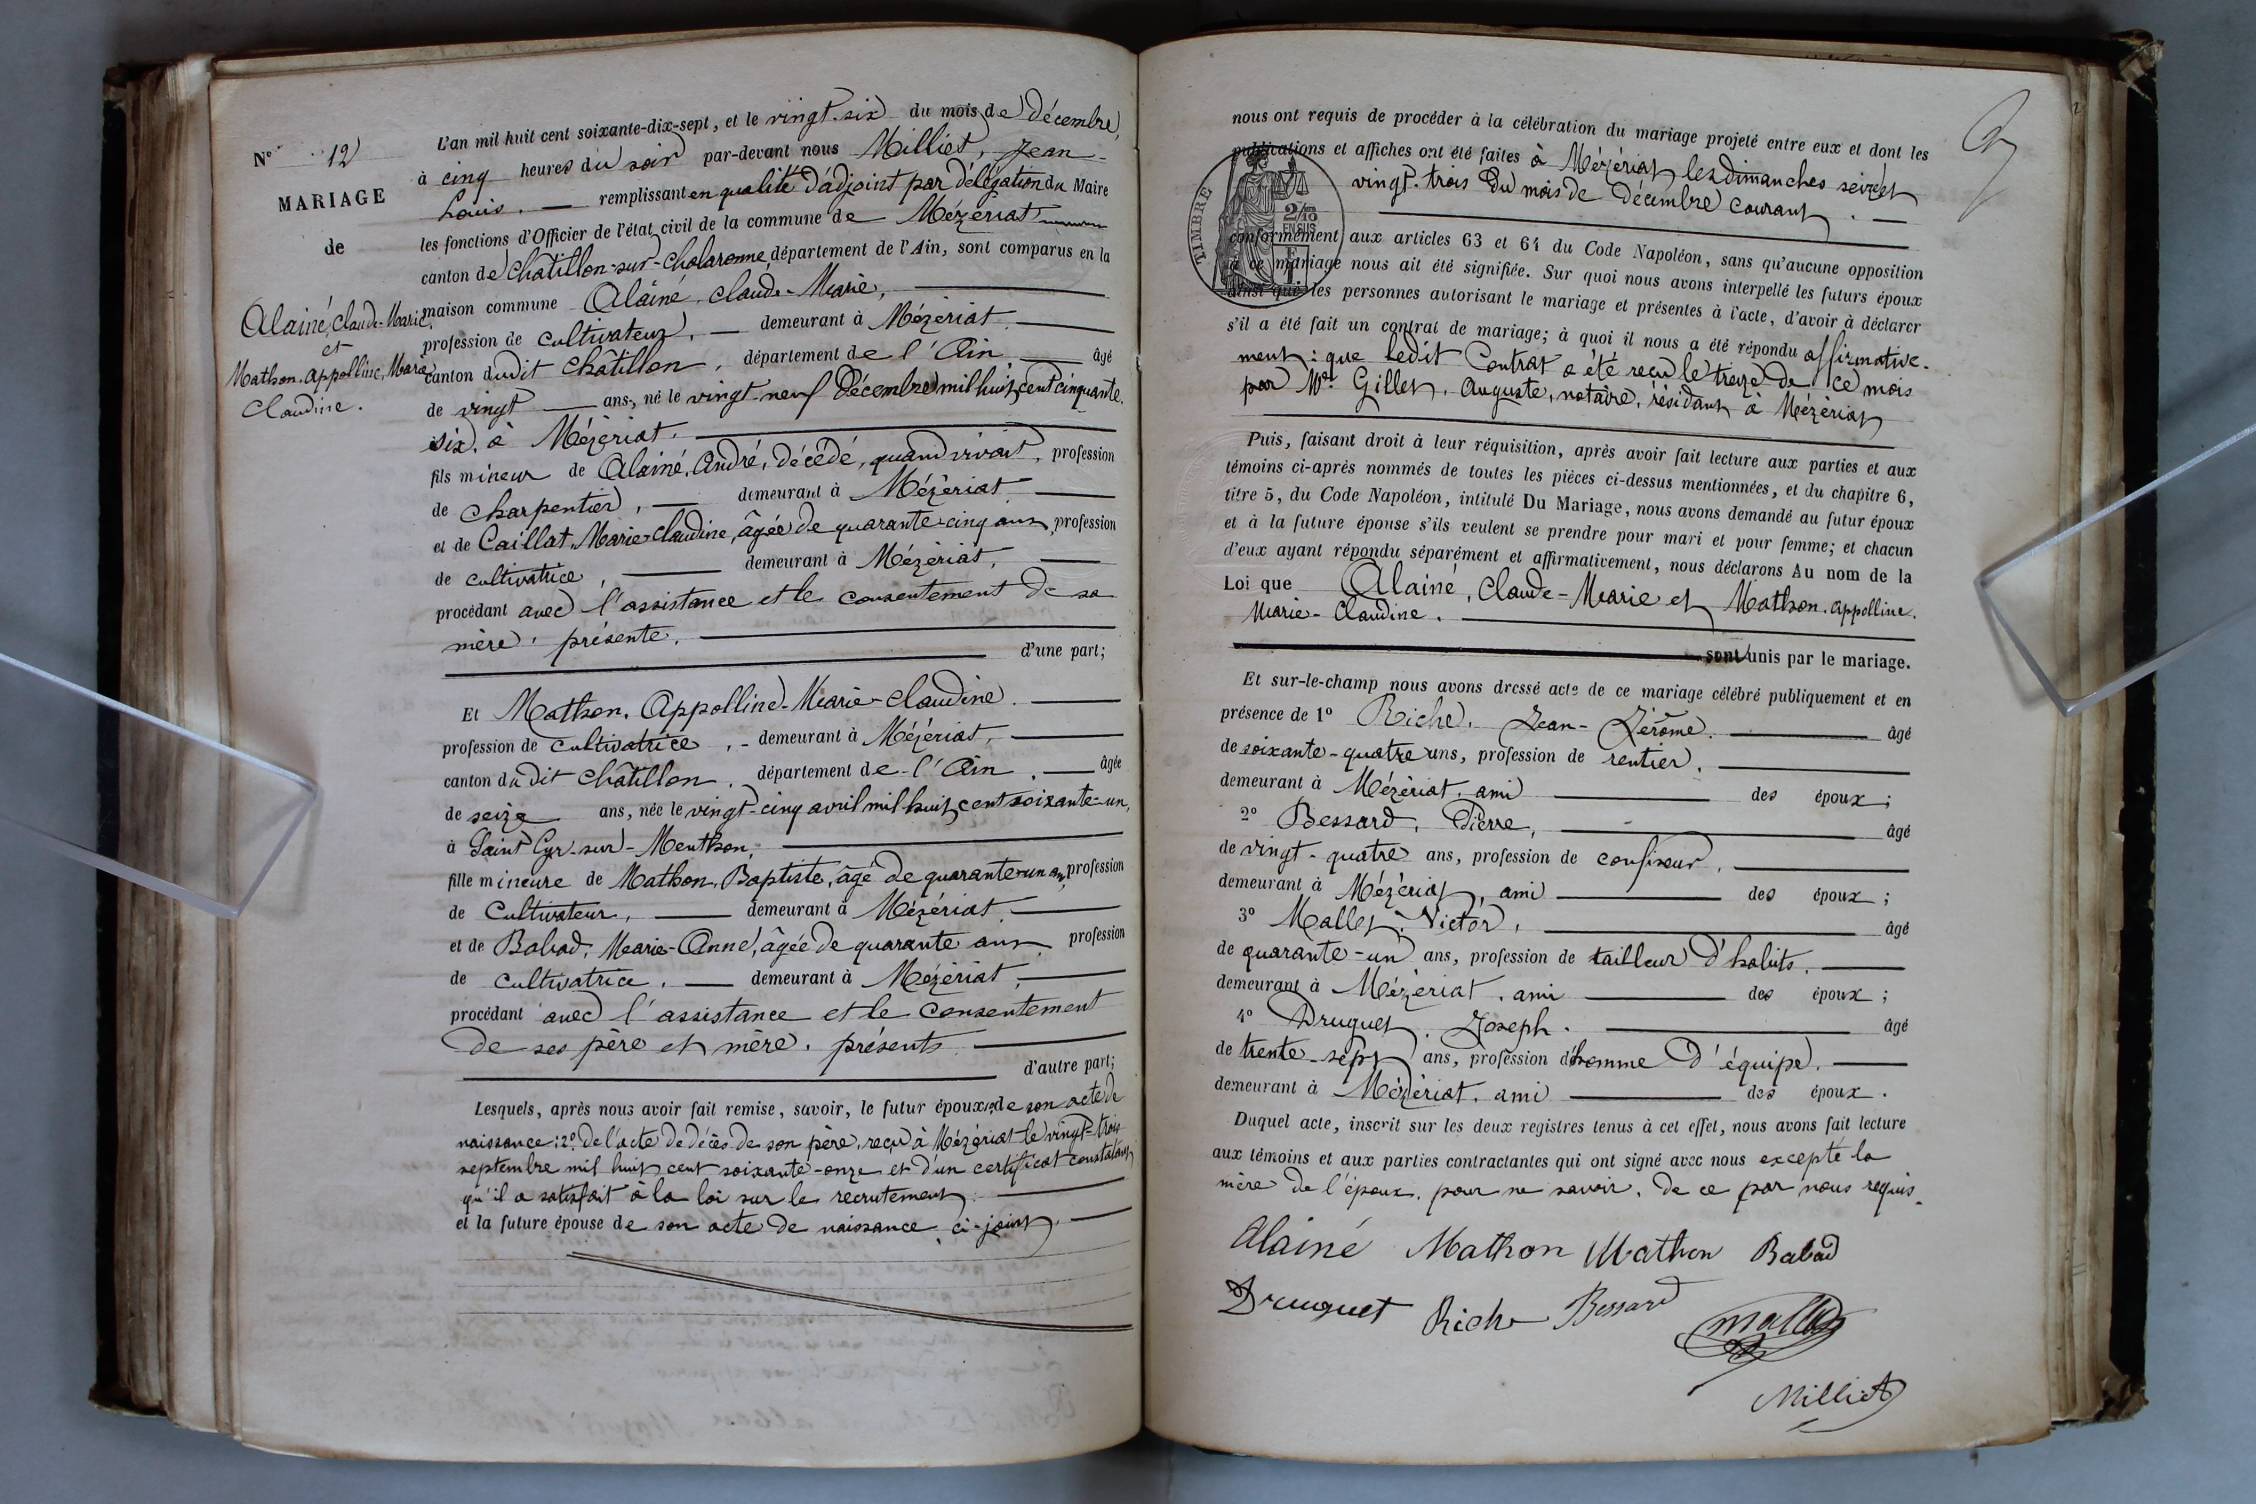 N° 12
MARIAGE
de
Alainé, Claude-Marie,
et
Mathon, Appolline, Marie
Claudine.
L'an mil huit cent soixante-dix-sept, et le vingt-six du mois de décembre,
à cinq heures du soir par-devant nous Milliet, Jean-
Louis. — remplissant en qualité d'adjoint par délégation du Maire
les fonctions d'Officier de l'état civil de la commune de Mézériat
canton de Châtillon-sur-Chalaronne, département de l'Ain, sont comparus en la
maison commune Alainé, Claude-Marie,
profession de cultivateur, — demeurant à Mézériat,
canton dudit Châtillon, département de l'Ain — âgé
de vingt — ans, né le vingt-neuf décembre mil huit cent cinquante-
six, à Mézériat.
fils mineur de Alainé, André, décédé, quand vivait, profession
de charpentier, — demeurant à Mézériat,
et de Caillat, Marie-Claudine, âgée de quarante-cinq ans, profession
de cultivatrice, — demeurant à Mézériat,
procédant avec l'assistance et le consentement de sa
mère, présente.
d'une part;
Et Mathon, Appolline-Marie-Claudine.
profession de cultivatrice, - demeurant à Mézériat,
canton dudit Châtillon, département de l'Ain, — âgée
de seize ans, née le vingt-cinq avril mil huit cent soixante-un,
à Saint Cyr-sur-Menthon,
fille mineure de Mathon, Baptiste, âgé de quarante-un ans, profession
de Cultivateur, — demeurant à Mézériat,
et de Babad, Marie-Anne, âgée de quarante ans, profession
de cultivatrice, — demeurant à Mézériat,
procédant avec l'assistance et le consentement
de ses père et mère, présents
d'autre part;
Lesquels, après nous avoir fait remise, savoir, le futur époux 1° de son acte de
naissance; 2° de l'acte de décès de son père, reçu à Mézériat le vingt-trois
septembre mil huit cent soixante-onze et d'un certificat constatant
qu'il a satisfait à la loi sur le recrutement;
et la future épouse de son acte de naissance, ci-joint,
nous ont requis de procéder à la célébration du mariage projeté entre eux et dont les
publications et affiches ont été faites à Mézériat les dimanches seize et
vingt-trois du mois de décembre courant. —
TIMBRE
2/10
EN SUS
conformément aux articles 63 et 64 du Code Napoléon, sans qu'aucune opposition
à ce mariage nous ait été signifiée. Sur quoi nous avons interpellé les futurs époux
ainsi que les personnes autorisant le mariage et présentes à l'acte, d'avoir à déclarer
s'il a été fait un contrat de mariage; à quoi il nous a été répondu affirmative-
ment: que ledit Contrat a été reçu le treize de ce mois
par Me Gillet, Auguste, notaire, résidant à Mézériat
Puis, faisant droit à leur réquisition, après avoir fait lecture aux parties et aux
témoins ci-après nommés de toutes les pièces ci-dessus mentionnées, et du chapitre 6,
titre 5, du Code Napoléon, intitulé Du Mariage, nous avons demandé au futur époux
et à la future épouse s'ils veulent se prendre pour mari et pour femme; et chacun
d'eux ayant répondu séparément et affirmativement, nous déclarons Au nom de la
Loi que Alainé, Claude-Marie et Mathon, Appolline,
Marie-Claudine.
sont unis par le mariage.
Et sur-le-champ nous avons dressé acte de ce mariage célébré publiquement et en
présence de 1° Riche, Jean-Jérôme. — âgé
de soixante-quatre ans, profession de rentier,
demeurant à Mézériat, ami — des époux;
2° Bessard, Pierre, — âgé
de vingt-quatre ans, profession de confiseur,
demeurant à Mézériat, ami — des époux;
3° Mallet, Victor, — âgé
de quarante-un ans, profession de tailleur d'habits,
demeurant à Mézériat, ami — des époux;
4° Druguet, Joseph. — âgé
de trente-sept ans, profession d'homme d'équipe,
demeurant à Mézériat, ami — des époux.
Duquel acte, inscrit sur les deux registres tenus à cet effet, nous avons fait lecture
aux témoins et aux parties contractantes qui ont signé avec nous excepté la
mère de l'époux, pour ne savoir, de ce par nous requis.
Alainé Mathon Mathon Babad
Druguet Riche Bessard Mallet
Milliet